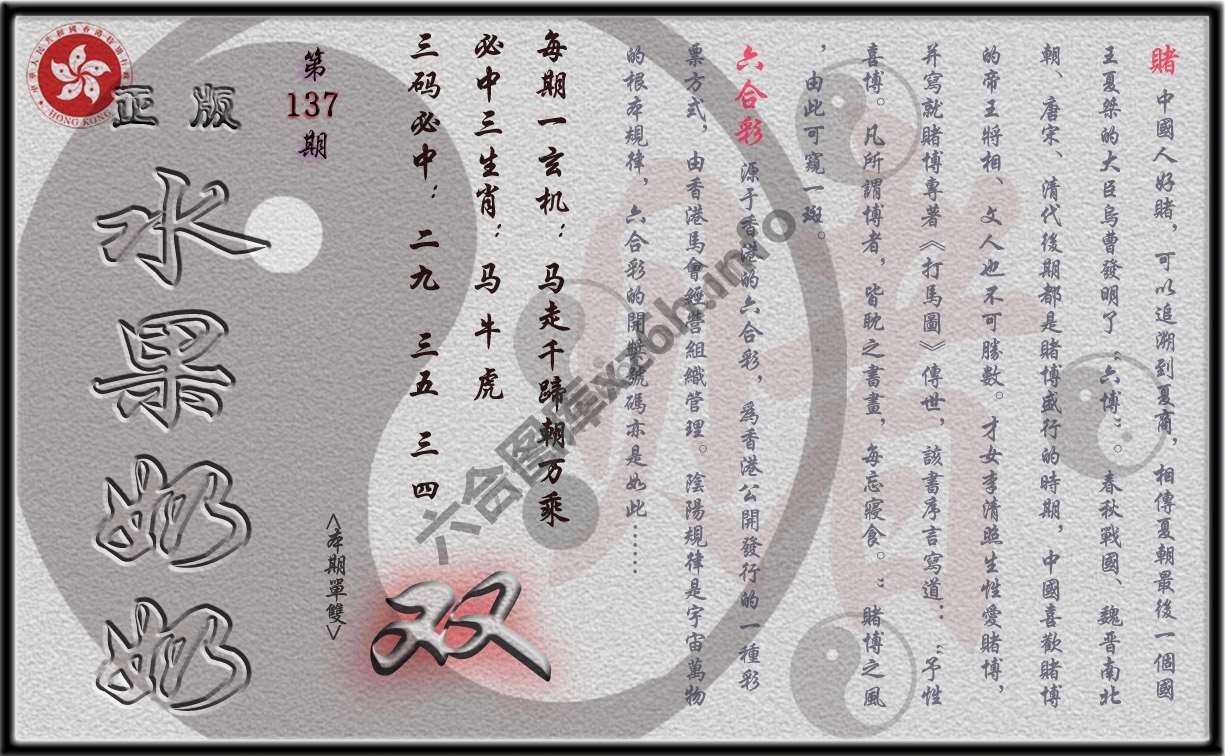 賭 中國人好賭，可以追溯到夏商，相傳夏朝最後一個國
王夏桀的大臣烏曹發明了“六博”。春秋戰國、魏晋南北
朝、唐宋、清代後期都是賭博盛行的時期，中國喜歡賭博
的帝王將相、文人也不可勝數。才女李清照生性愛賭博，
并寫就賭博專著《打馬圖》傳世，該書序言寫道：“予性
喜博。凡所謂博者，皆眈之書畫，每忘寢食。”賭博之風
，由此可窺一斑。
六合彩 源于香港的六合彩，為香港公開發行的一種彩
票方式，由香港馬會經營組織管理。陰陽規律是宇宙萬物
的根本規律，六合彩的開獎號碼亦是如此……
每期一玄机：马走千蹄朝万乘
必中三生肖：马牛虎
三码必中：二九 三五 三四
<本期單雙>
双
第
137
期
正版
水果奶奶
HONG KONG
六合图库xz6h.info